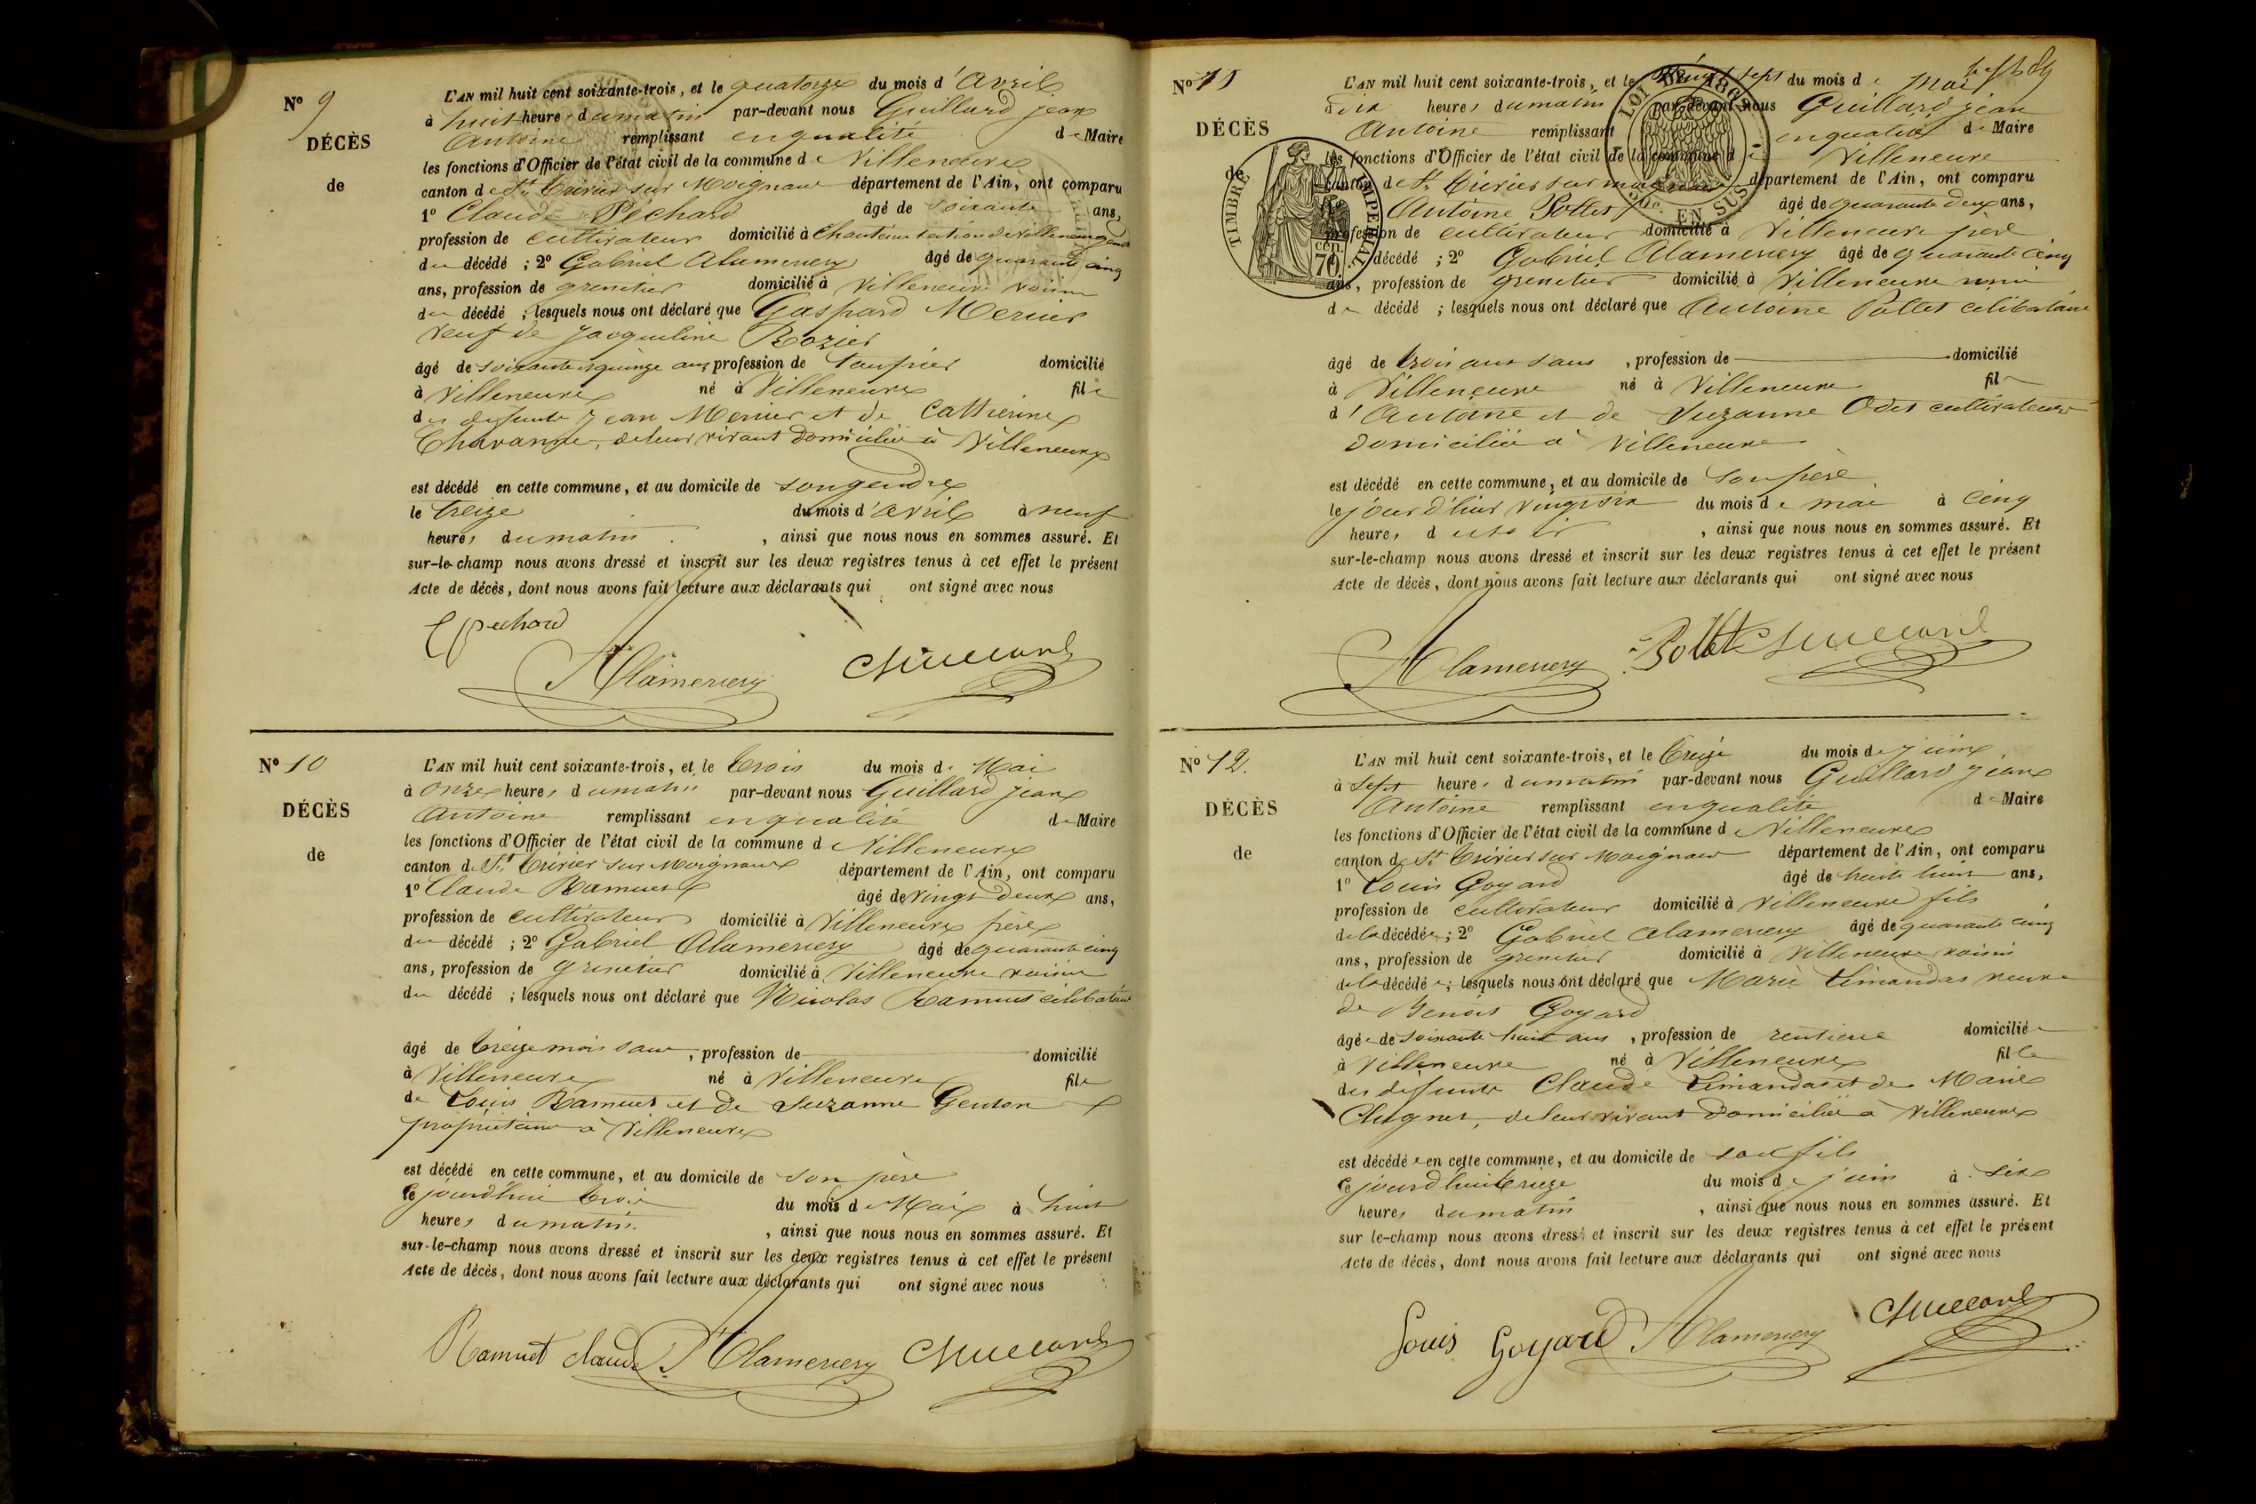 Nº 9
DÉCÈS
de
L'AN mil huit cent soixante-trois, et le quatorze du mois d'avril
à huit heures du matin par-devant nous Guillard jean
Antoine remplissant en qualité de Maire
les fonctions d'Officier de l'état civil de la commune de Villeneuve
canton de St Trivier sur Moignans département de l'Ain, ont comparu
1º Claude Péchard âgé de soixante ans,
profession de cultivateur domicilié à
du décédé ; 2º Gabriel Alamercery âgé de quarante cinq
ans, profession de grenetier domicilié à Villeneuve voisin
du décédé ; lesquels nous ont déclaré que Gaspard Mercier
veuf de Jacqueline Rozier
âgé de soixante quinze ans, profession de domicilié
à Villeneuve né à Villeneuve fils
des defunts Jean Mercier et de Catherine
Chavanne, de leur vivant domiciliés à Villeneuve
est décédé en cette commune, et au domicile de son gendre
le treize du mois d'avril à neuf
heures du matin , ainsi que nous nous en sommes assuré. Et
sur-le-champ nous avons dressé et inscrit sur les deux registres tenus à cet effet le présent
Acte de décès, dont nous avons fait lecture aux déclarants qui ont signé avec nous
Pechard
Alamercery Guillard
Nº 10
DÉCÈS
de
L'AN mil huit cent soixante-trois, et le trois du mois de Mai
à onze heures du matin par-devant nous Guillard jean
Antoine remplissant en qualité de Maire
les fonctions d'Officier de l'état civil de la commune de Villeneuve
canton de St Trivier sur Moignans département de l'Ain, ont comparu
1º Claude Ramuet âgé de vingt deux ans,
profession de cultivateur domicilié à Villeneuve frère
du décédé ; 2º Gabriel Alamercery âgé de quarante cinq
ans, profession de grenetier domicilié à Villeneuve voisin
du décédé ; lesquels nous ont déclaré que Nicolas Ramuet célibataire
âgé de treize mois sans , profession de domicilié
à Villeneuve né à Villeneuve fils
de Louis Ramuet et de Suzanne Genton
propriétaires à Villeneuve
est décédé en cette commune, et au domicile de son père
le jourd'hui trois du mois de Mai à huit
heures du matin , ainsi que nous nous en sommes assuré. Et
sur-le-champ nous avons dressé et inscrit sur les deux registres tenus à cet effet le présent
Acte de décès, dont nous avons fait lecture aux déclarants qui ont signé avec nous
Ramuet claude Alamercery Guillard
Nº 11
DÉCÈS
de
TIMBRE IMPERIAL
70 cen.
LOI DE 1862
EN SUS
L'AN mil huit cent soixante-trois, et le vingt sept du mois de mai
à dix heures du matin par-devant nous Guillard jean
Antoine remplissant en qualité de Maire
les fonctions d'Officier de l'état civil de la commune de Villeneuve
canton de St Trivier sur département de l'Ain, ont comparu
Antoine Pollet âgé de quarante deux ans,
profession de cultivateur domicilié à Villeneuve père
du décédé ; 2º Gabriel Alamercery âgé de quarante cinq
ans, profession de grenetier domicilié à Villeneuve
du décédé ; lesquels nous ont déclaré que Antoine Pollet célibataire
âgé de trois ans sans , profession de domicilié
à Villeneuve né à Villeneuve fils
d'Antoine et de Suzanne Odet cultivateurs
domiciliés à Villeneuve
est décédé en cette commune, et au domicile de son père
le jourd'hui vingt six du mois de mai à cinq
heures du soir , ainsi que nous nous en sommes assuré. Et
sur-le-champ nous avons dressé et inscrit sur les deux registres tenus à cet effet le présent
Acte de décès, dont nous avons fait lecture aux déclarants qui ont signé avec nous
Alamercery Pollet Guillard
Nº 12.
DÉCÈS
de
L'AN mil huit cent soixante-trois, et le treize du mois de juin
à sept heures du matin par-devant nous Guillard jean
Antoine remplissant en qualité de Maire
les fonctions d'Officier de l'état civil de la commune de Villeneuve
canton de St Trivier sur Moignans département de l'Ain, ont comparu
1º Louis Goyard âgé de trente huit ans,
profession de cultivateur domicilié à Villeneuve fils
de la décédée ; 2º Gabriel Alamercery âgé de quarante cinq
ans, profession de grenetier domicilié à Villeneuve voisin
de la décédée ; lesquels nous ont déclaré que Marie Limandas veuve
de Benoit Goyard
âgée de soixante huit ans , profession de rentiere domiciliée
à Villeneuve né à Villeneuve fille
des defunts Claude Limandas et de Marie
Clugnet, de leur vivant domiciliés à Villeneuve
est décédée en cette commune, et au domicile de son fils
le jourd'hui treize du mois de juin à six
heures du matin , ainsi que nous nous en sommes assuré. Et
sur le-champ nous avons dressé et inscrit sur les deux registres tenus à cet effet le présent
Acte de décès, dont nous avons fait lecture aux déclarants qui ont signé avec nous
Louis Goyard Alamercery Guillard